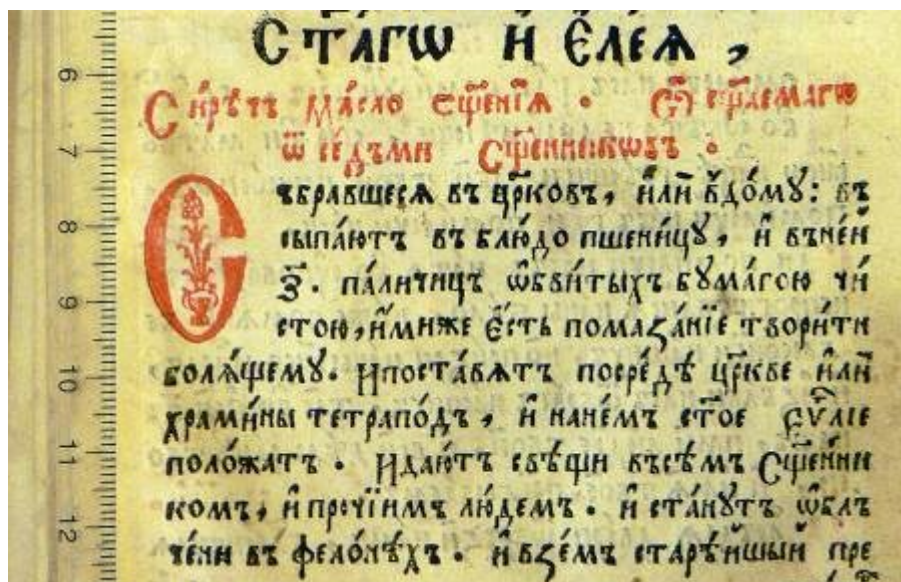 Ст҃а́гѡ и҆ Є҆ле́ѧ ,
Си́рѣчь ма́сло сщ҃е́нїѧ · сщ҃а́емагѡ
ѿ се́дъми Сщ҃е́нникѡвъ ·
Събравшесѧ въ цр҃ковъ, и҆лѝ в̾до́мꙋ: въ
сыпа́ютъ въ блю́до пшени́цꙋ, и҆ въне́й
з҃· па́личицъ ѡ҆бви́тыхъ бꙋма́гою чи́
стою, и҆миже є҆сть помаꙁа́нїе твори́ти
болѧ́щемꙋ. Ипоста́вѧтъ посре́дѣ цр҃кве и҆лѝ
хра́мины тетрапо́дъ, и҆ нане́мъ ст҃ое Єѵ҃лїе
поло́жатъ · Идаю́тъ свѣ́щи въсѣ́мъ Сщ҃е́нни
комъ, и҆ про́чїимъ лю́демъ · и҆ ста́нꙋтъ ѡ҆бл
че́ни въ фело́нѣхъ · и҆ вꙁе́мъ старѣ́йшый пре